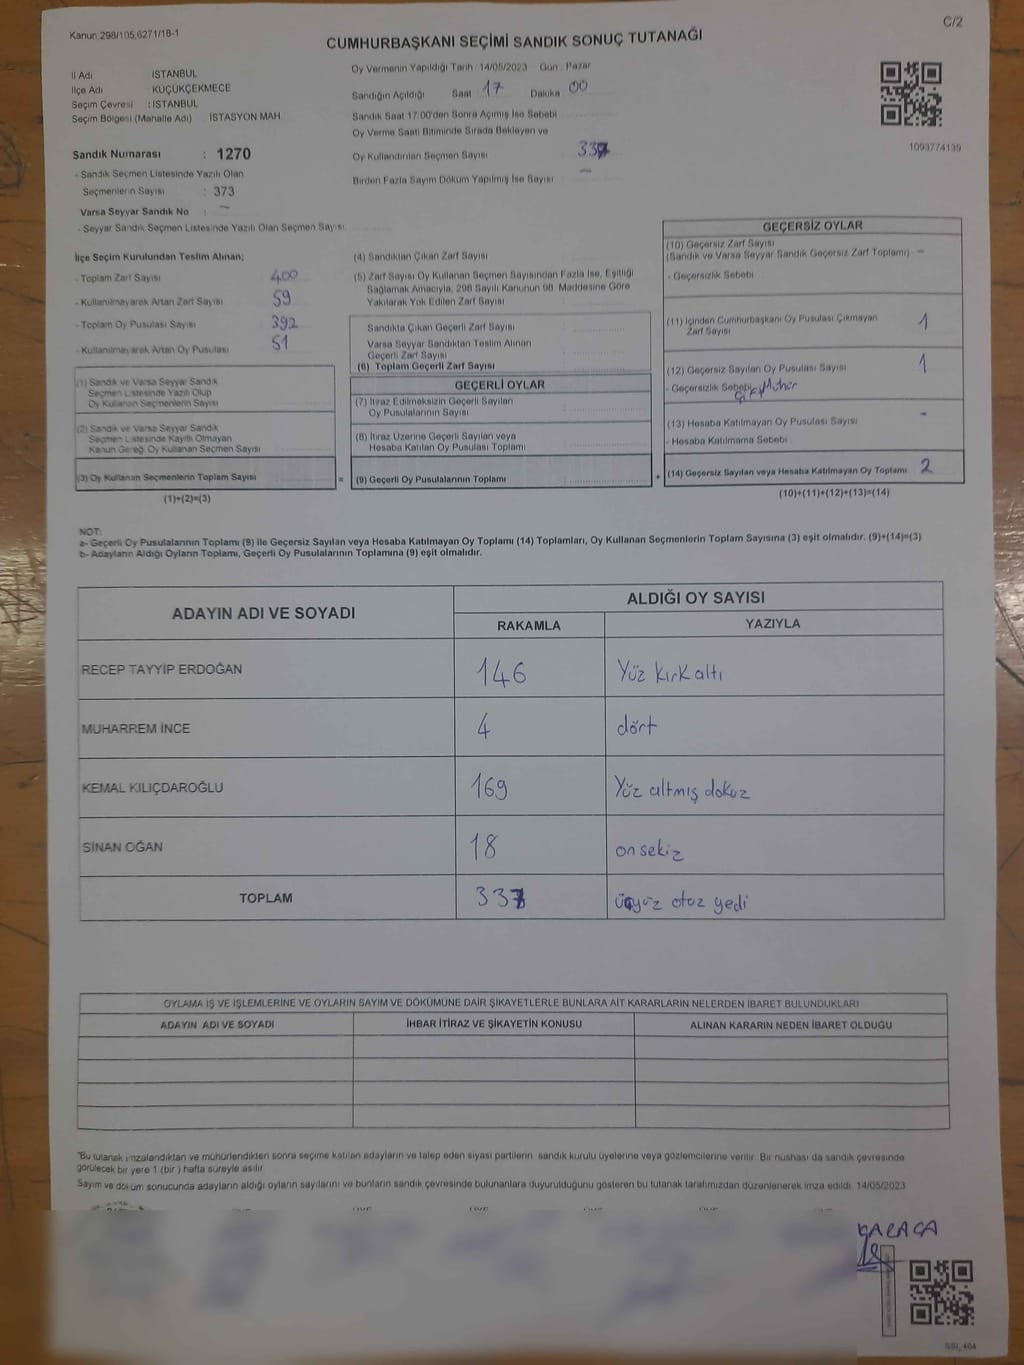 C/2
Kanun:298/105,6271/18-1
CUMHURBAŞKANI SEÇİMİ SANDIK SONUÇ TUTANAĞI
İl Adı İSTANBUL
İlçe Adı KÜÇÜKÇEKMECE
Seçim Çevresi : İSTANBUL
Seçim Bölgesi (Mahalle Adı) İSTASYON MAH.
Oy Vermenin Yapıldığı Tarih 14/05/2023 Gün Pazar
Sandığın Açıldığı Saat 17 Dakika 00
Sandık Saat 17:00'den Sonra Açımış İse Sebebi
Oy Verme Saati Bitiminde Sırada Bekleyen ve
Oy Kullandırılan Seçmen Sayısı 337
Birden Fazla Sayım Döküm Yapılmış İse Sayısı —
1093774139
Sandık Numarası : 1270
- Sandık Seçmen Listesinde Yazılı Olan
Seçmenlerin Sayısı : 373
Varsa Seyyar Sandık No : —
- Seyyar Sandık Seçmen Listesinde Yazılı Olan Seçmen Sayısı:
İlçe Seçim Kurulundan Teslim Alınan;
- Toplam Zarf Sayısı 400
- Kullanılmayarak Artan Zarf Sayısı 59
- Toplam Oy Pusulası Sayısı 392
- Kullanılmayarak Artan Oy Pusulası 51
(1) Sandık ve Varsa Seyyar Sandık
Seçmen Listesinde Yazılı Olup
Oy Kullanan Seçmenlerin Sayısı
(2) Sandık ve Varsa Seyyar Sandık
Seçmen Listesinde Kayıtlı Olmayan
Kanun Gereği Oy Kullanan Seçmen Sayısı
(3) Oy Kullanan Seçmenlerin Toplam Sayısı =
(1)+(2)=(3)
(4) Sandıktan Çıkan Zarf Sayısı
(5) Zarf Sayısı Oy Kullanan Seçmen Sayısından Fazla İse, Eşitliği
Sağlamak Amacıyla, 298 Sayılı Kanunun 98. Maddesine Göre
Yakılarak Yok Edilen Zarf Sayısı
Sandıkta Çıkan Geçerli Zarf Sayısı
Varsa Seyyar Sandıktan Teslim Alınan
Geçerli Zarf Sayısı
(6) Toplam Geçerli Zarf Sayısı
GEÇERLİ OYLAR
(7) İtiraz Edilmeksizin Geçerli Sayılan
Oy Pusulalarının Sayısı
(8) İtiraz Üzerine Geçerli Sayılan veya
Hesaba Katılan Oy Pusulası Toplamı
(9) Geçerli Oy Pusulalarının Toplamı +
GEÇERSİZ OYLAR
(10) Geçersiz Zarf Sayısı
(Sandık ve Varsa Seyyar Sandık Geçersiz Zarf Toplamı) —
- Geçersizlik Sebebi
(11) İçinden Cumhurbaşkanı Oy Pusulası Çıkmayan
Zarf Sayısı 1
(12) Geçersiz Sayılan Oy Pusulası Sayısı 1
- Geçersizlik Sebebi Çift Mühür
(13) Hesaba Katılmayan Oy Pusulası Sayısı -
- Hesaba Katılmama Sebebi
(14) Geçersiz Sayılan veya Hesaba Katılmayan Oy Toplamı 2
(10)+(11)+(12)+(13)=(14)
NOT:
a- Geçerli Oy Pusulalarının Toplamı (9) ile Geçersiz Sayılan veya Hesaba Katılmayan Oy Toplamı (14) Toplamları, Oy Kullanan Seçmenlerin Toplam Sayısına (3) eşit olmalıdır. (9)+(14)=(3)
b- Adayların Aldığı Oyların Toplamı, Geçerli Oy Pusulalarının Toplamına (9) eşit olmalıdır.
ADAYIN ADI VE SOYADI ALDIĞI OY SAYISI
RAKAMLA YAZIYLA
RECEP TAYYİP ERDOĞAN 146 Yüz kırk altı
MUHARREM İNCE 4 dört
KEMAL KILIÇDAROĞLU 169 Yüz altmış dokuz
SİNAN OĞAN 18 on sekiz
TOPLAM 337 üçyüz otuz yedi
OYLAMA İŞ VE İŞLEMLERİNE VE OYLARIN SAYIM VE DÖKÜMÜNE DAİR ŞİKAYETLERLE BUNLARA AİT KARARLARIN NELERDEN İBARET BULUNDUKLARI
ADAYIN ADI VE SOYADI İHBAR İTİRAZ VE ŞİKAYETİN KONUSU ALINAN KARARIN NEDEN İBARET OLDUĞU
"Bu tutanak imzalandıktan ve mühürlendikten sonra seçime katılan adayların ve talep eden siyasi partilerin sandık kurulu üyelerine veya gözlemcilerine verilir. Bir nüshası da sandık çevresinde
görülecek bir yere 1 (bir) hafta süreyle asılır.
Sayım ve döküm sonucunda adayların aldığı oyların sayılarını ve bunların sandık çevresinde bulunanlara duyurulduğunu gösteren bu tutanak tarafımızdan düzenlenerek imza edildi. 14/05/2023
KARACA
SSI_404